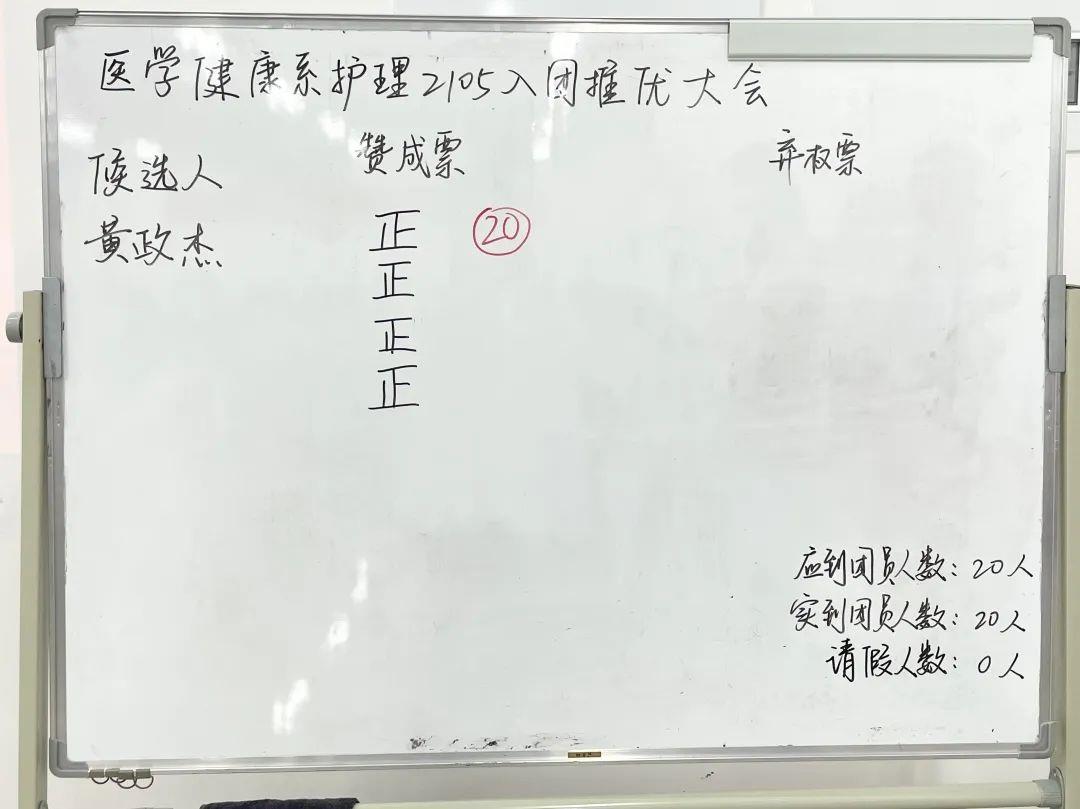 医学健康系护理2105入团推优大会
候选人 赞成票 弃权票
黄政杰 正 20
正
正
正
应到团员人数：20人
实到团员人数：20人
请假人数：0人